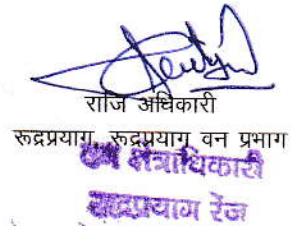 राजि अधिकारी
रूद्रप्रयाग, रूद्रप्रयाग वन प्रभाग
वन क्षेत्राधिकारी
रूद्रप्रयाग रेंज